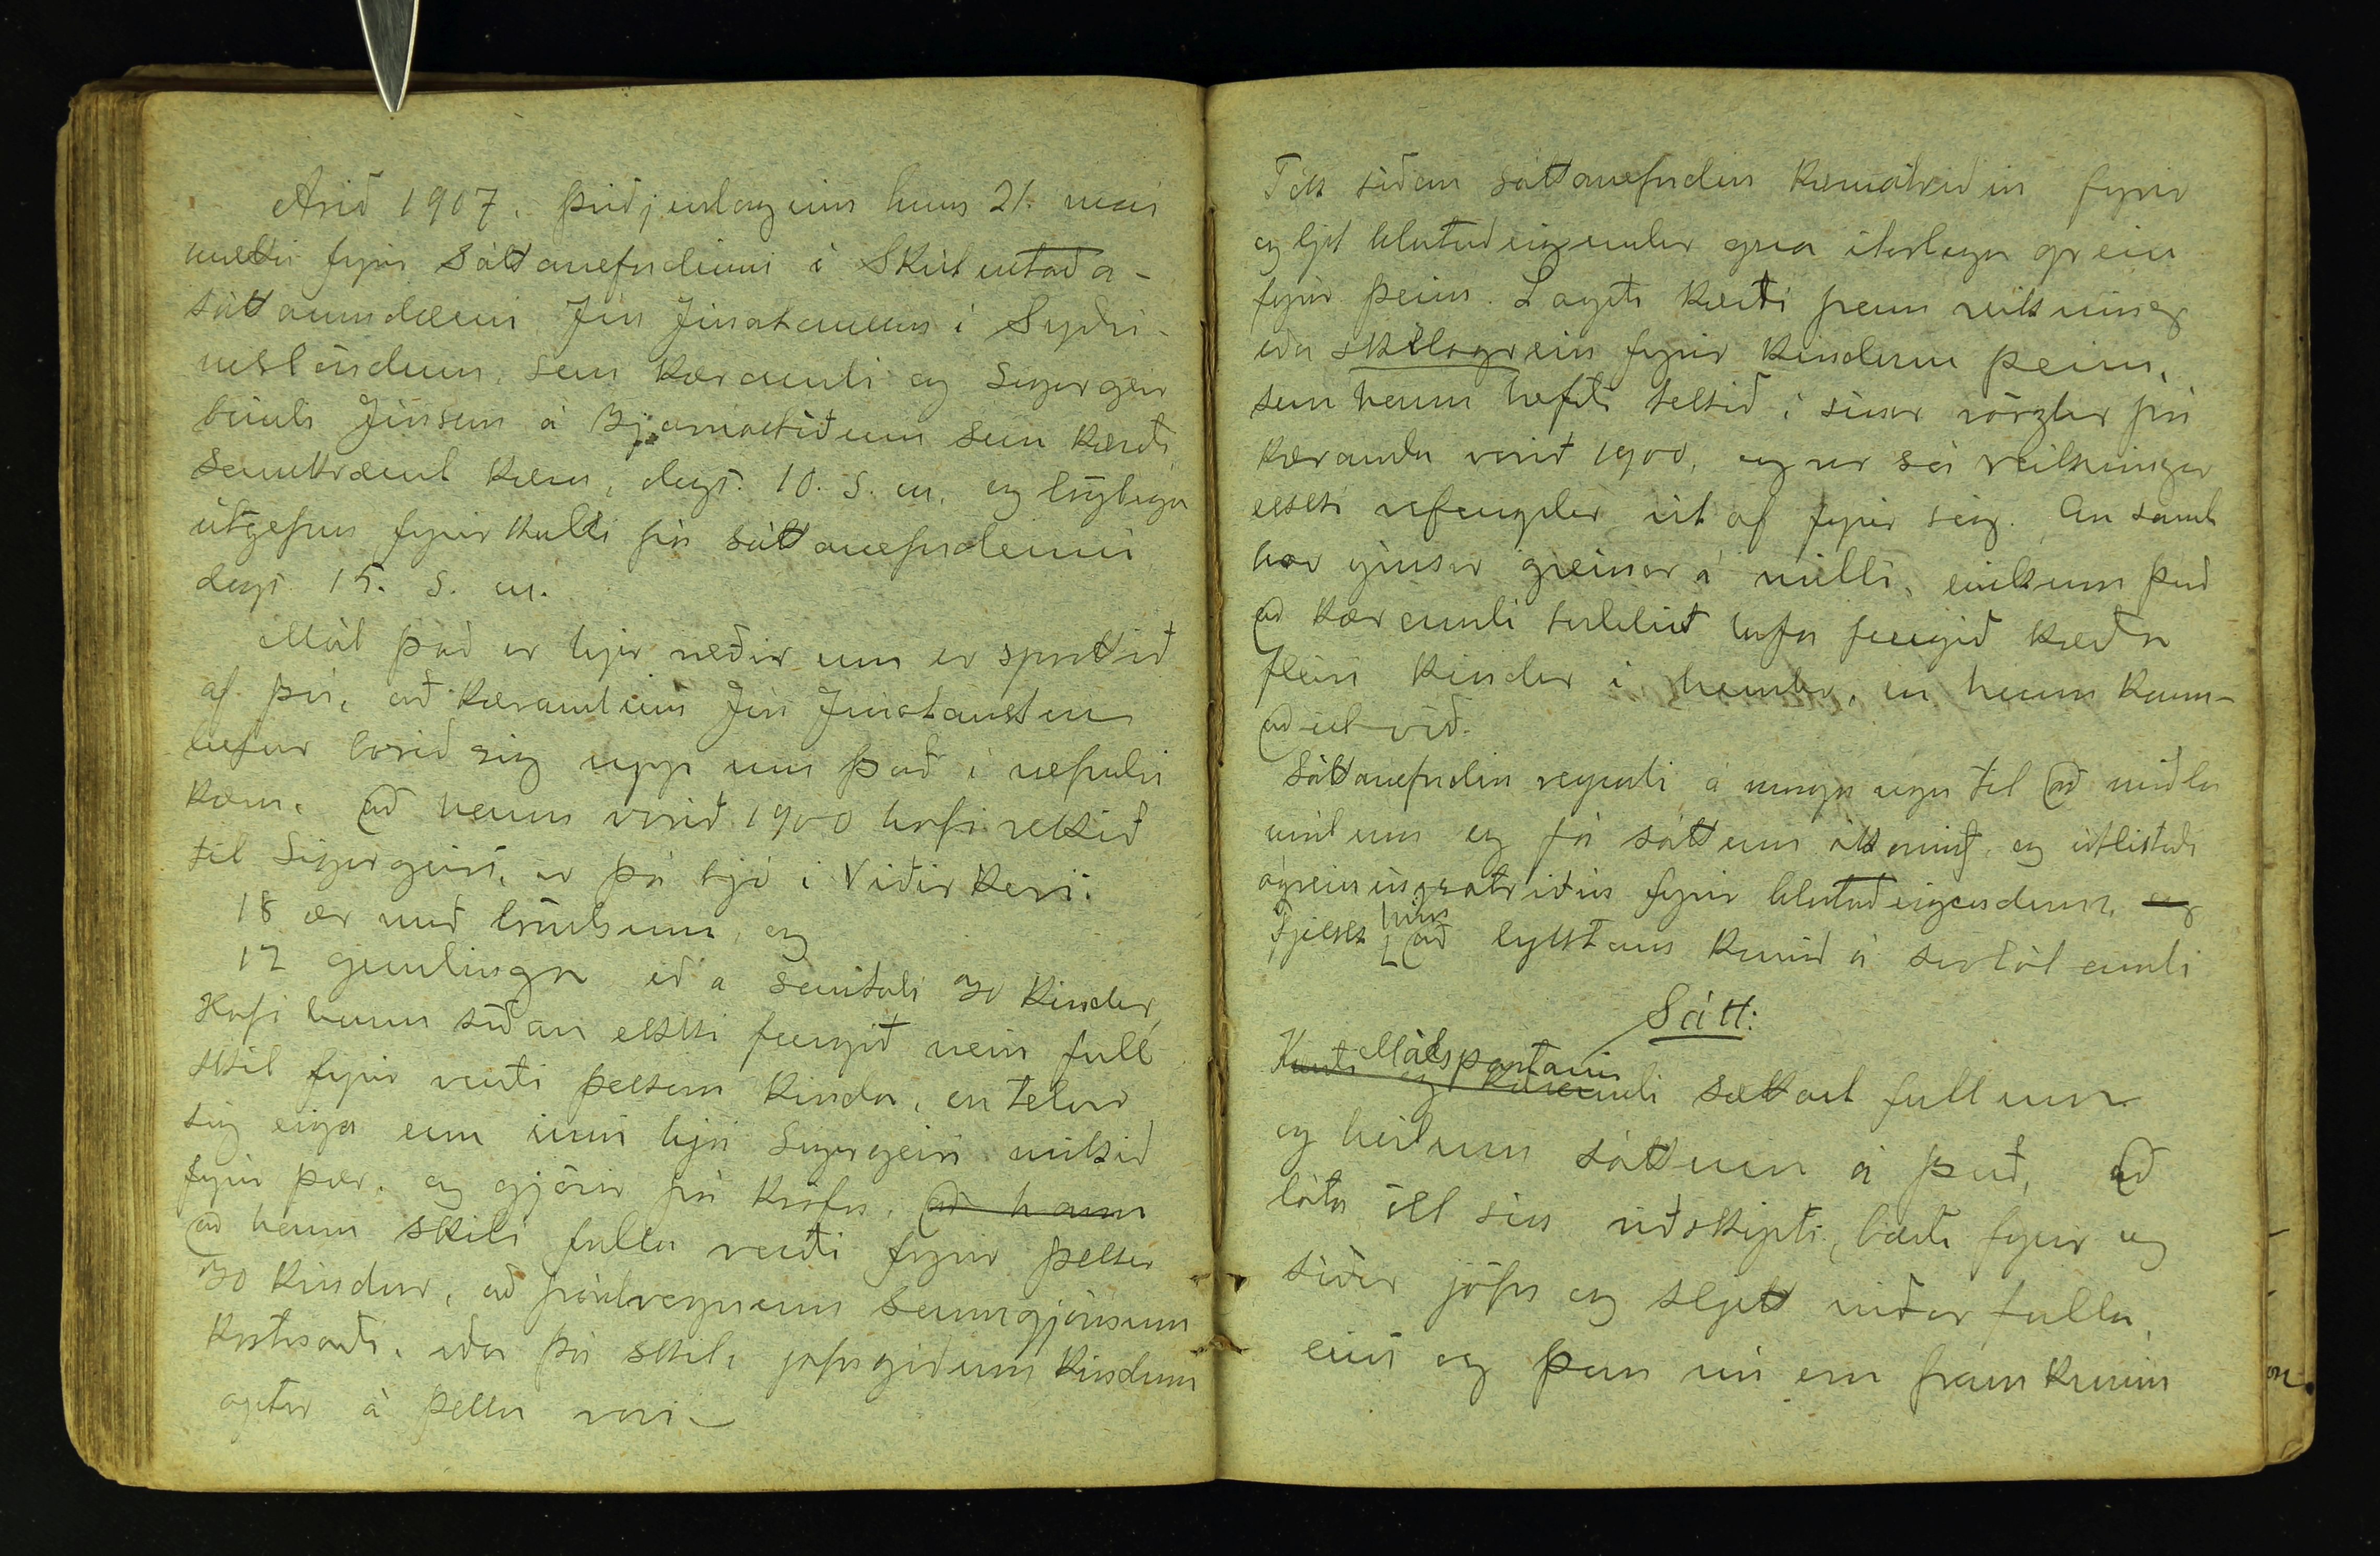 Árið 1907, þriðjudaginn hinn 21. maí
mætti fyrir Sáttanefndinni í Skútustaða-
sáttaumdæmi Jón Jónatansson í Syðri-
neslöndum, sem kærandi og Sigurgeir
bóndi Jónsson á Bjarnastöðum sem kærði,
samkvæmt kæru, dags. 10. s. m. og löglega
útgefnu fyrirkalli frá sáttanefndinni
dags 15. s. m.
Mál það er hjer ræðir um er sprottið
af því, að kærandinn Jón Jónatansson
hefur borið sig upp um það í nefndri
kæru. að hann vorið 1900 hafi rekið
til Sigurgeirs, er þá bjó í Víðirkeri:
18 ær með lömbum, og
12 gemlinga eða samtals 30 kindur,
Hafi hann síðan ekki fengið nein full
skil fyrir verði þessara kinda, en telur
sig eiga enn inni hjá Sigurgeiri mikið
fyrir þær, og gjörir þá kröfu, að hann
að hann skili fullu verði fyrir þessar
30 kindur, að frádregnum sanngjörnum
kostnaði, eða þá skili jafngóðum kindum
aptur á þessu vori
Tók síðan sáttanefndin kæruatriðin fyrir
og ljet hlutaðeigendur gera ítarlega grein
fyrir þeim. Lagði kærði fram reikning
eða skilagrein fyrir kindum þeim,
sem hann hefði tekið í sínar vörzlur frá
kæranda vorið 1900, og var sá reikningur
ekki vefengdur út af fyrir sig. En samt
bar ýmsar greinar á milli, einkum það
að kærandi taldist hafa fengið kærða
fleiri kindur í hendur, en hann kann-
aðist við.
Sáttanefndin reyndi á marga vegu til að miðla
málum og fá sáttum ákomið, og útlistaði
ágreiningsatriðin fyrir hlutaðeigendum, og
Fjekk hún að lyktum komið á svolátandi
Sátt:
Málspartarnir
Kærði og kærandi sættast fullum
og heilum sáttum á það, að
láta öll sín viðskipti, bæði fyrir og
síðar jöfn og sljett niður falla,
eins og þau nú eru fram komin